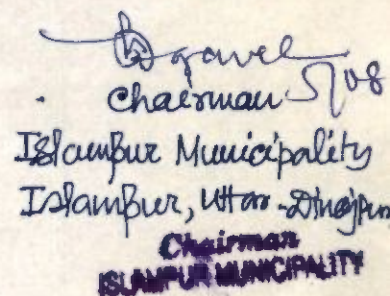 Chairman 5/08
Islampur Municipality
Islampur, Uttar-Dinajpur
Chairman
ISLAMPUR MUNICIPALITY